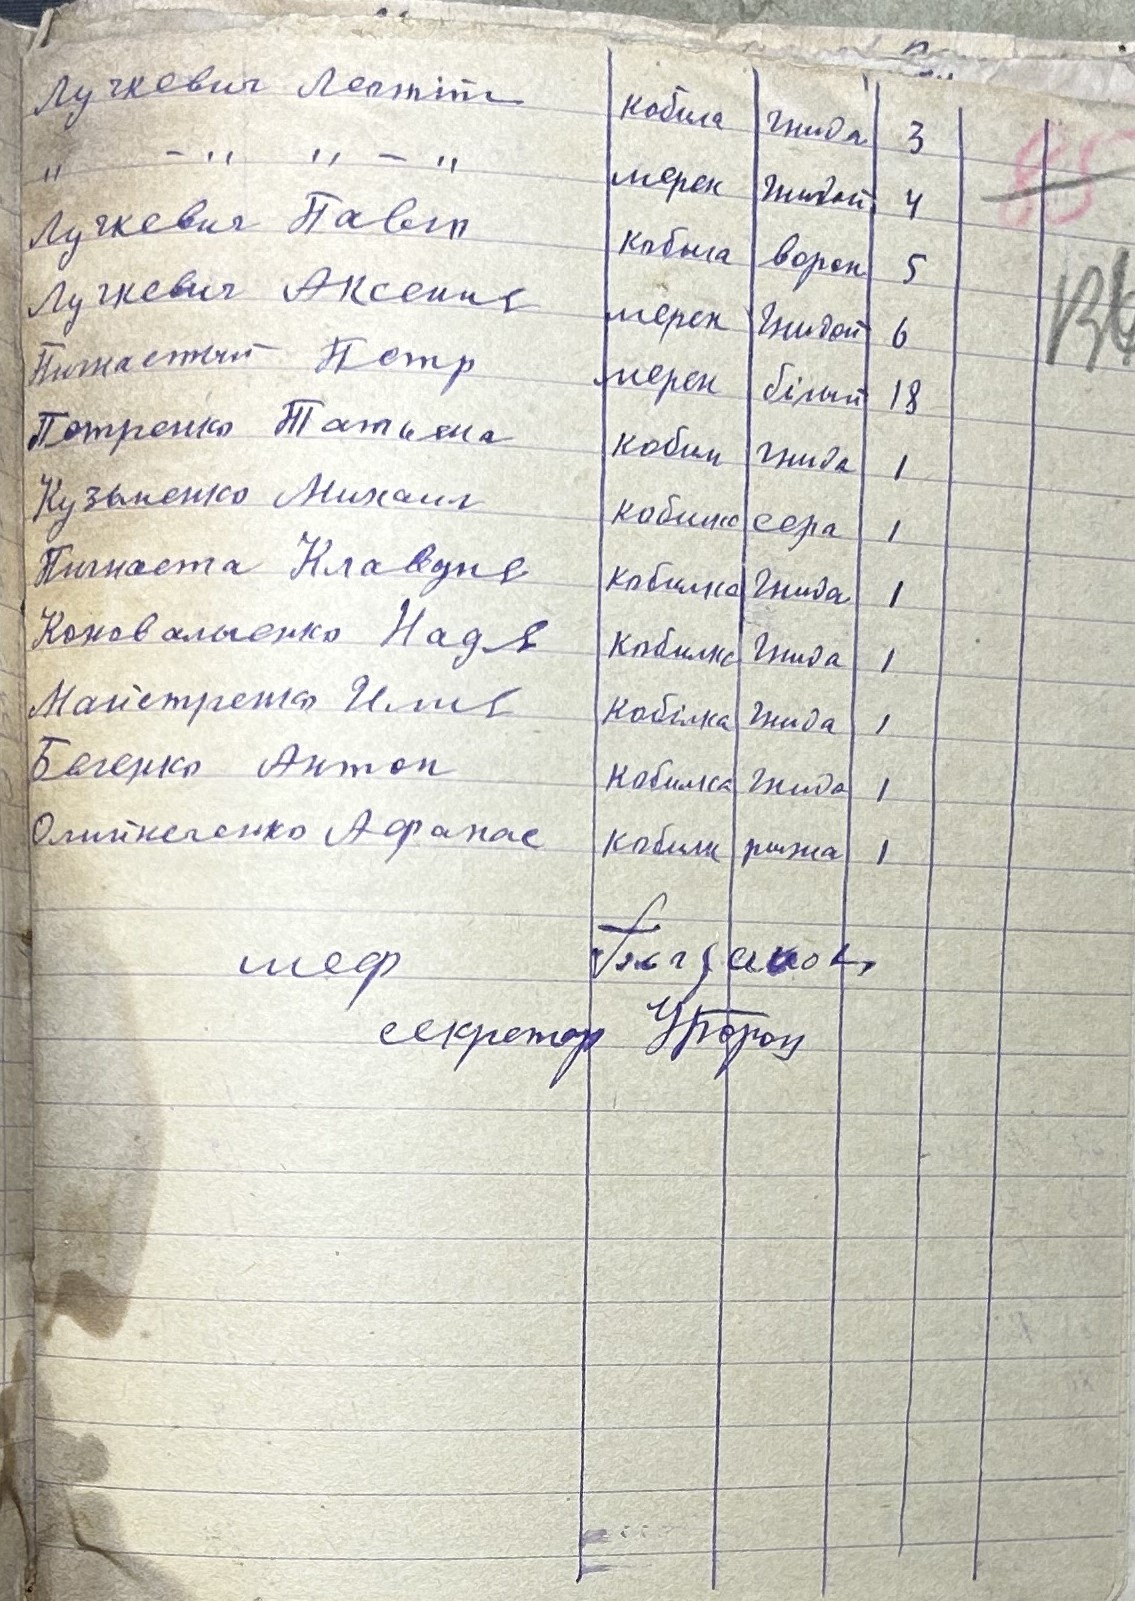 Лучкевич кобила гнида 3
" - " " - " мерен гнидой 4
Лучкевич Павло кобыла ворон 5
Лучкевич Аксения мерен гнидой 6
Пигнастый Петр мерен білый 18
Петренко Татьяна кобил гнида 1
Кузьменко Михаил кобилка сера 1
Пигнаста Клавдия кобилка гнида 1
Коноваленко Надя кобилка гнида 1
Майстренко Илия кобілка гнида 1
Антон кобилка гнида 1
Афанас кобилк рижа 1
шеф
секретар
85